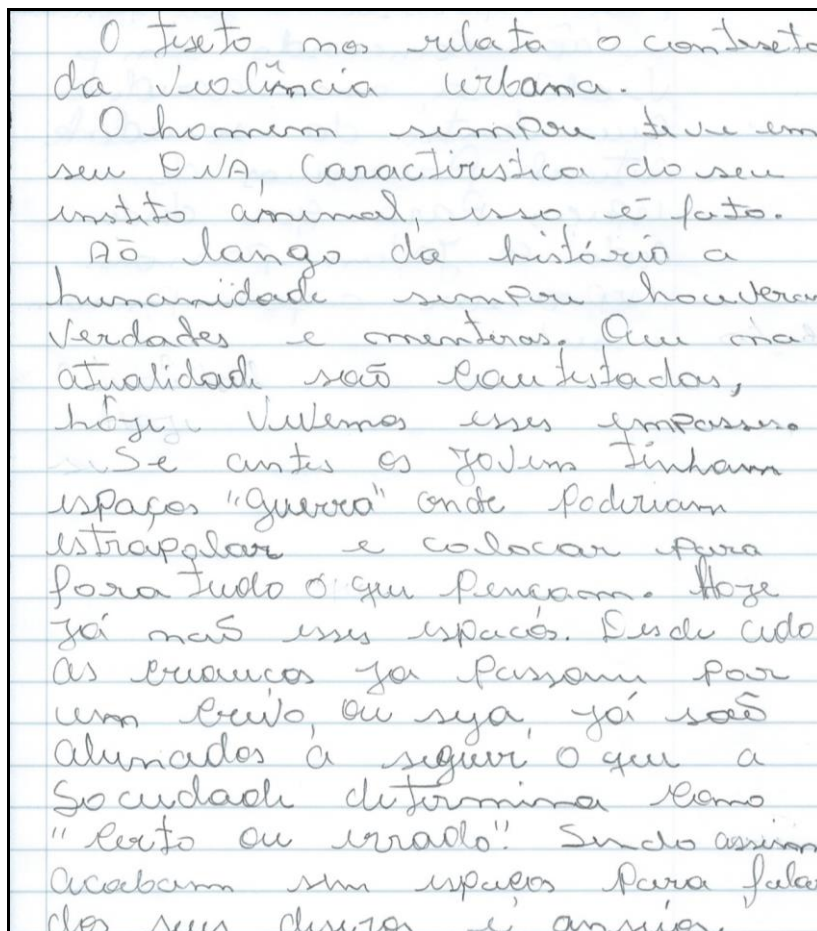 O texto nos relata o contexto
da violência urbana.
O homem sempre teve em
seu DNA, Caracteristica do seu
instito animal, isso é fato.
Aō longo da história a
humanidade sempre houveram
verdades e mentiras. Que na
atualidade saō contestadas,
hóje vivemos esses empasses.
Se antes os jovem tinham
espaços "guerra" onde poderiam
estrapolar e colocar para
fora tudo o que pençam. Hoje
já naō esses espaços. Desde cedo
as crianças ja passam por
um crivo, ou seja, já saō
alienados á seguir o que a
Sociedade determina como
"certo ou errado". Sendo assim
acabam sem espaços para falar
dos seus e anseios.